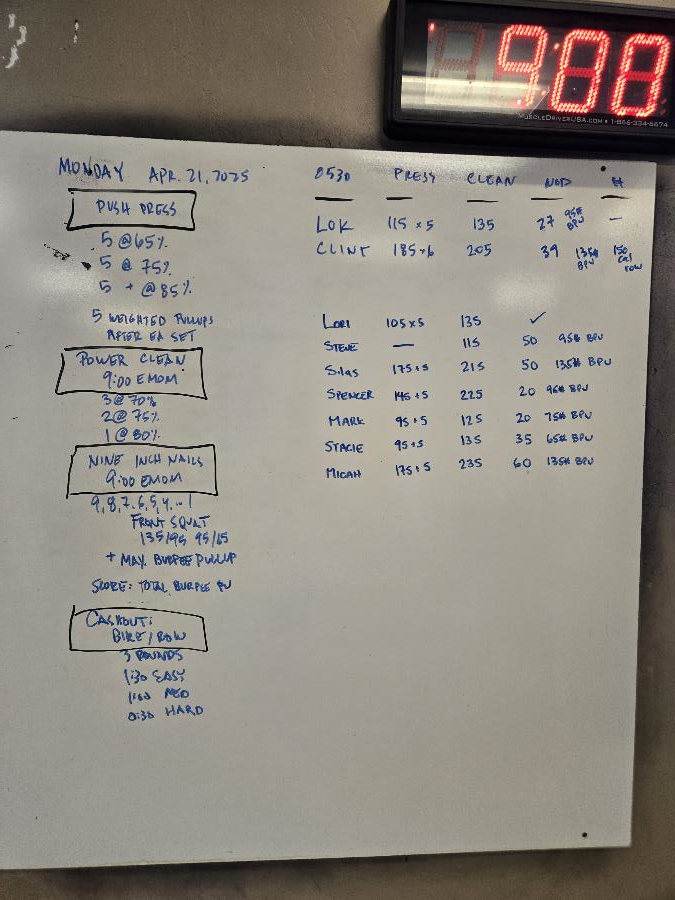 9:00
MUSCLEDRIVERUSA.COM • 1-866-334-6674
MONDAY APR. 21, 2025
PUSH PRESS
5 @ 65%
5 @ 75%
5 + @ 85%
5 WEIGHTED PULLUPS
AFTER EA SET
POWER CLEAN
9:00 EMOM
3 @ 70%
2 @ 75%
1 @ 80%
NINE INCH NAILS
9:00 EMOM
9, 8, 7, 6, 5, 4 ... 1
FRONT SQUAT
135/95 95/65
+ MAX BURPEE PULLUP
SCORE: TOTAL BURPEE PU
CASHOUT:
BIKE/ROW
3 ROUNDS
1:30 EASY
1:00 MED
0:30 HARD
0530 PRESS CLEAN WOD
LOK 115 x 5 135 27 95# BPU —
CLINT 185 x 6 205 39 135# BPU 150 Cal row
LORI 105 x 5 135 ✓
STEVE — 115 50 95# BPU
Silas 175 x 5 215 50 135# BPU
SPENCER 145 x 5 225 20 95# BPU
MARK 95 x 5 125 20 75# BPU
STACIE 95 x 5 135 35 65# BPU
MICAH 175 x 5 235 60 135# BPU